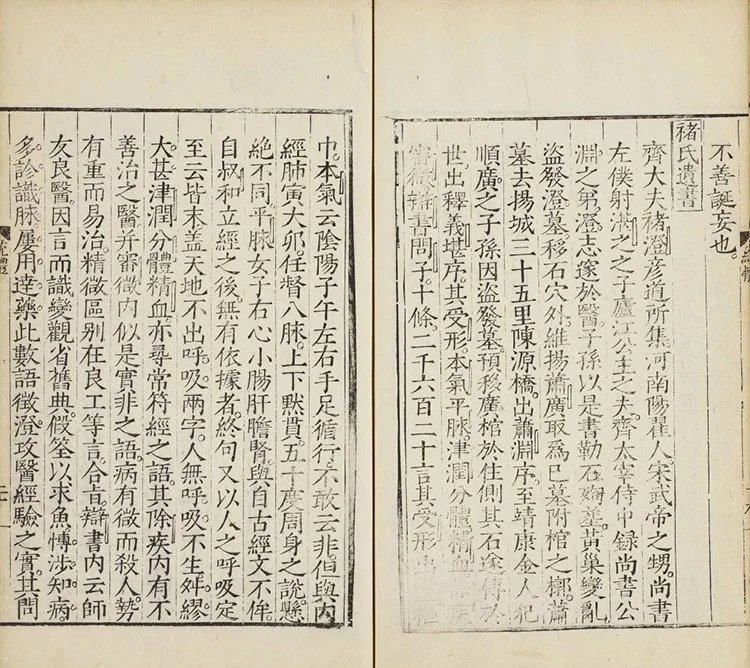 不善誕妄也。
褚氏遺書
齊大夫褚澄彦道所集。河南陽翟人。宋武帝之甥。尚書
左僕射湛之之子。廬江公主之夫。齊太宰侍中録尚書公
淵之弟。澄志邃於醫。子孫以是書勒石。殉墓。黃巢變亂
盜發澄墓。移石穴外。維揚蕭廣取爲巳墓附棺之槨。蕭
墓去揚城三十五里陳源橋。出蕭淵序。至靖康金人犯
順。廣之子孫因盜發墓。預移廣棺於他側其石遂傳於
世出釋義堪序。其受形。本氣。平脉。津潤。分體。精血。除疾
審微辯書問子。十條。二千六百二十言其受形
巾。本氣云陰陽子午左右手足循行。不敢云非。但與內
經肺寅大卯。任督八脉。上下黙貫。五十度周身之說懸
絶不同。平脉女子右心小腸肝膽腎與自古經文不侔。
自叔和立經之後。無有依據者。終句又以人之呼吸定
至云皆末。盖天地不出呼。吸兩字。人無呼。吸不生。舛繆
大甚。津潤分體精血。亦尋常符經之語。其除疾内有不
善治之醫并審微内似是實非之語。病有微而殺人。勢
有重而易治。精徵區别在良工等言。合旨。辯書内云師
友良醫。因言而識變觀省舊典。假筌以求魚。博涉知病。
多診識脉。屢用達藥此數語徵澄攻醫經驗之實。其問